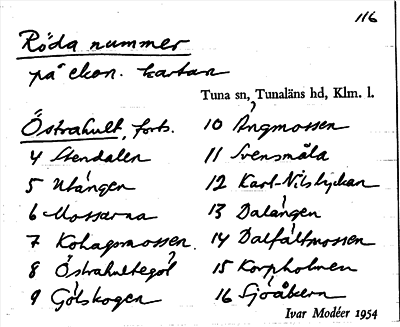 116
Röda nummer
på ekon. kartan
Tuna sn, Tunaläns hd, Klm. l.
Östrahult, forts.
4 Stendalen
5 Utängen
6 Mossarna
7 Kohagsmossen
8 Östrahultegöl
9 Gölskogen
10 Ängmossen
11 Svensmåla
12 Karl-Nilslyckan
13 Dalängen
14 Dalfältmossen
15 Korpholmen
16 Sjöåkern
Ivar Modéer 1954